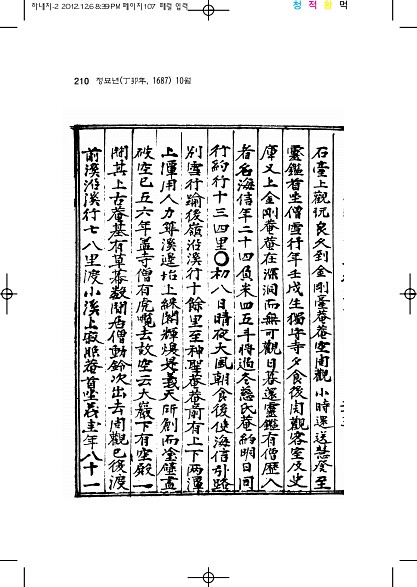 하내지-2 2012.12.6 8:39 PM 페이지107 페평 입력
청 적 황 먹
210 정묘년(丁卯年, 1687) 10월
石臺上觀玩良久到金剛臺菴菴空周觀小時還送慧登至
靈鑑首坐僧雪行年壬戌生獨坐寺夕食後周觀客室及史
庫又上金剛菴菴在深洞而無可觀日暮還靈鑑有僧歷入
者名海信年二十四負米四五斗將過冬慈氏菴約明日同
行約行十三四里〇初八日晴夜大風朝食後使海信引路
別雪行踰後嶺沿溪行十餘里至神聖菴菴前有上下兩潭
上潭用人力尊溪邊坮上綵閣輝煥是義天所創而塗壁畫
破空已五六年盖寺僧有虎覽去故空云大嶺下有空殿一
間其上古菴基有草菴數間居僧勳鈴次出去周觀已後渡
前溪沿溪行七八里渡小溪上寂照菴首坐義圭年八十一